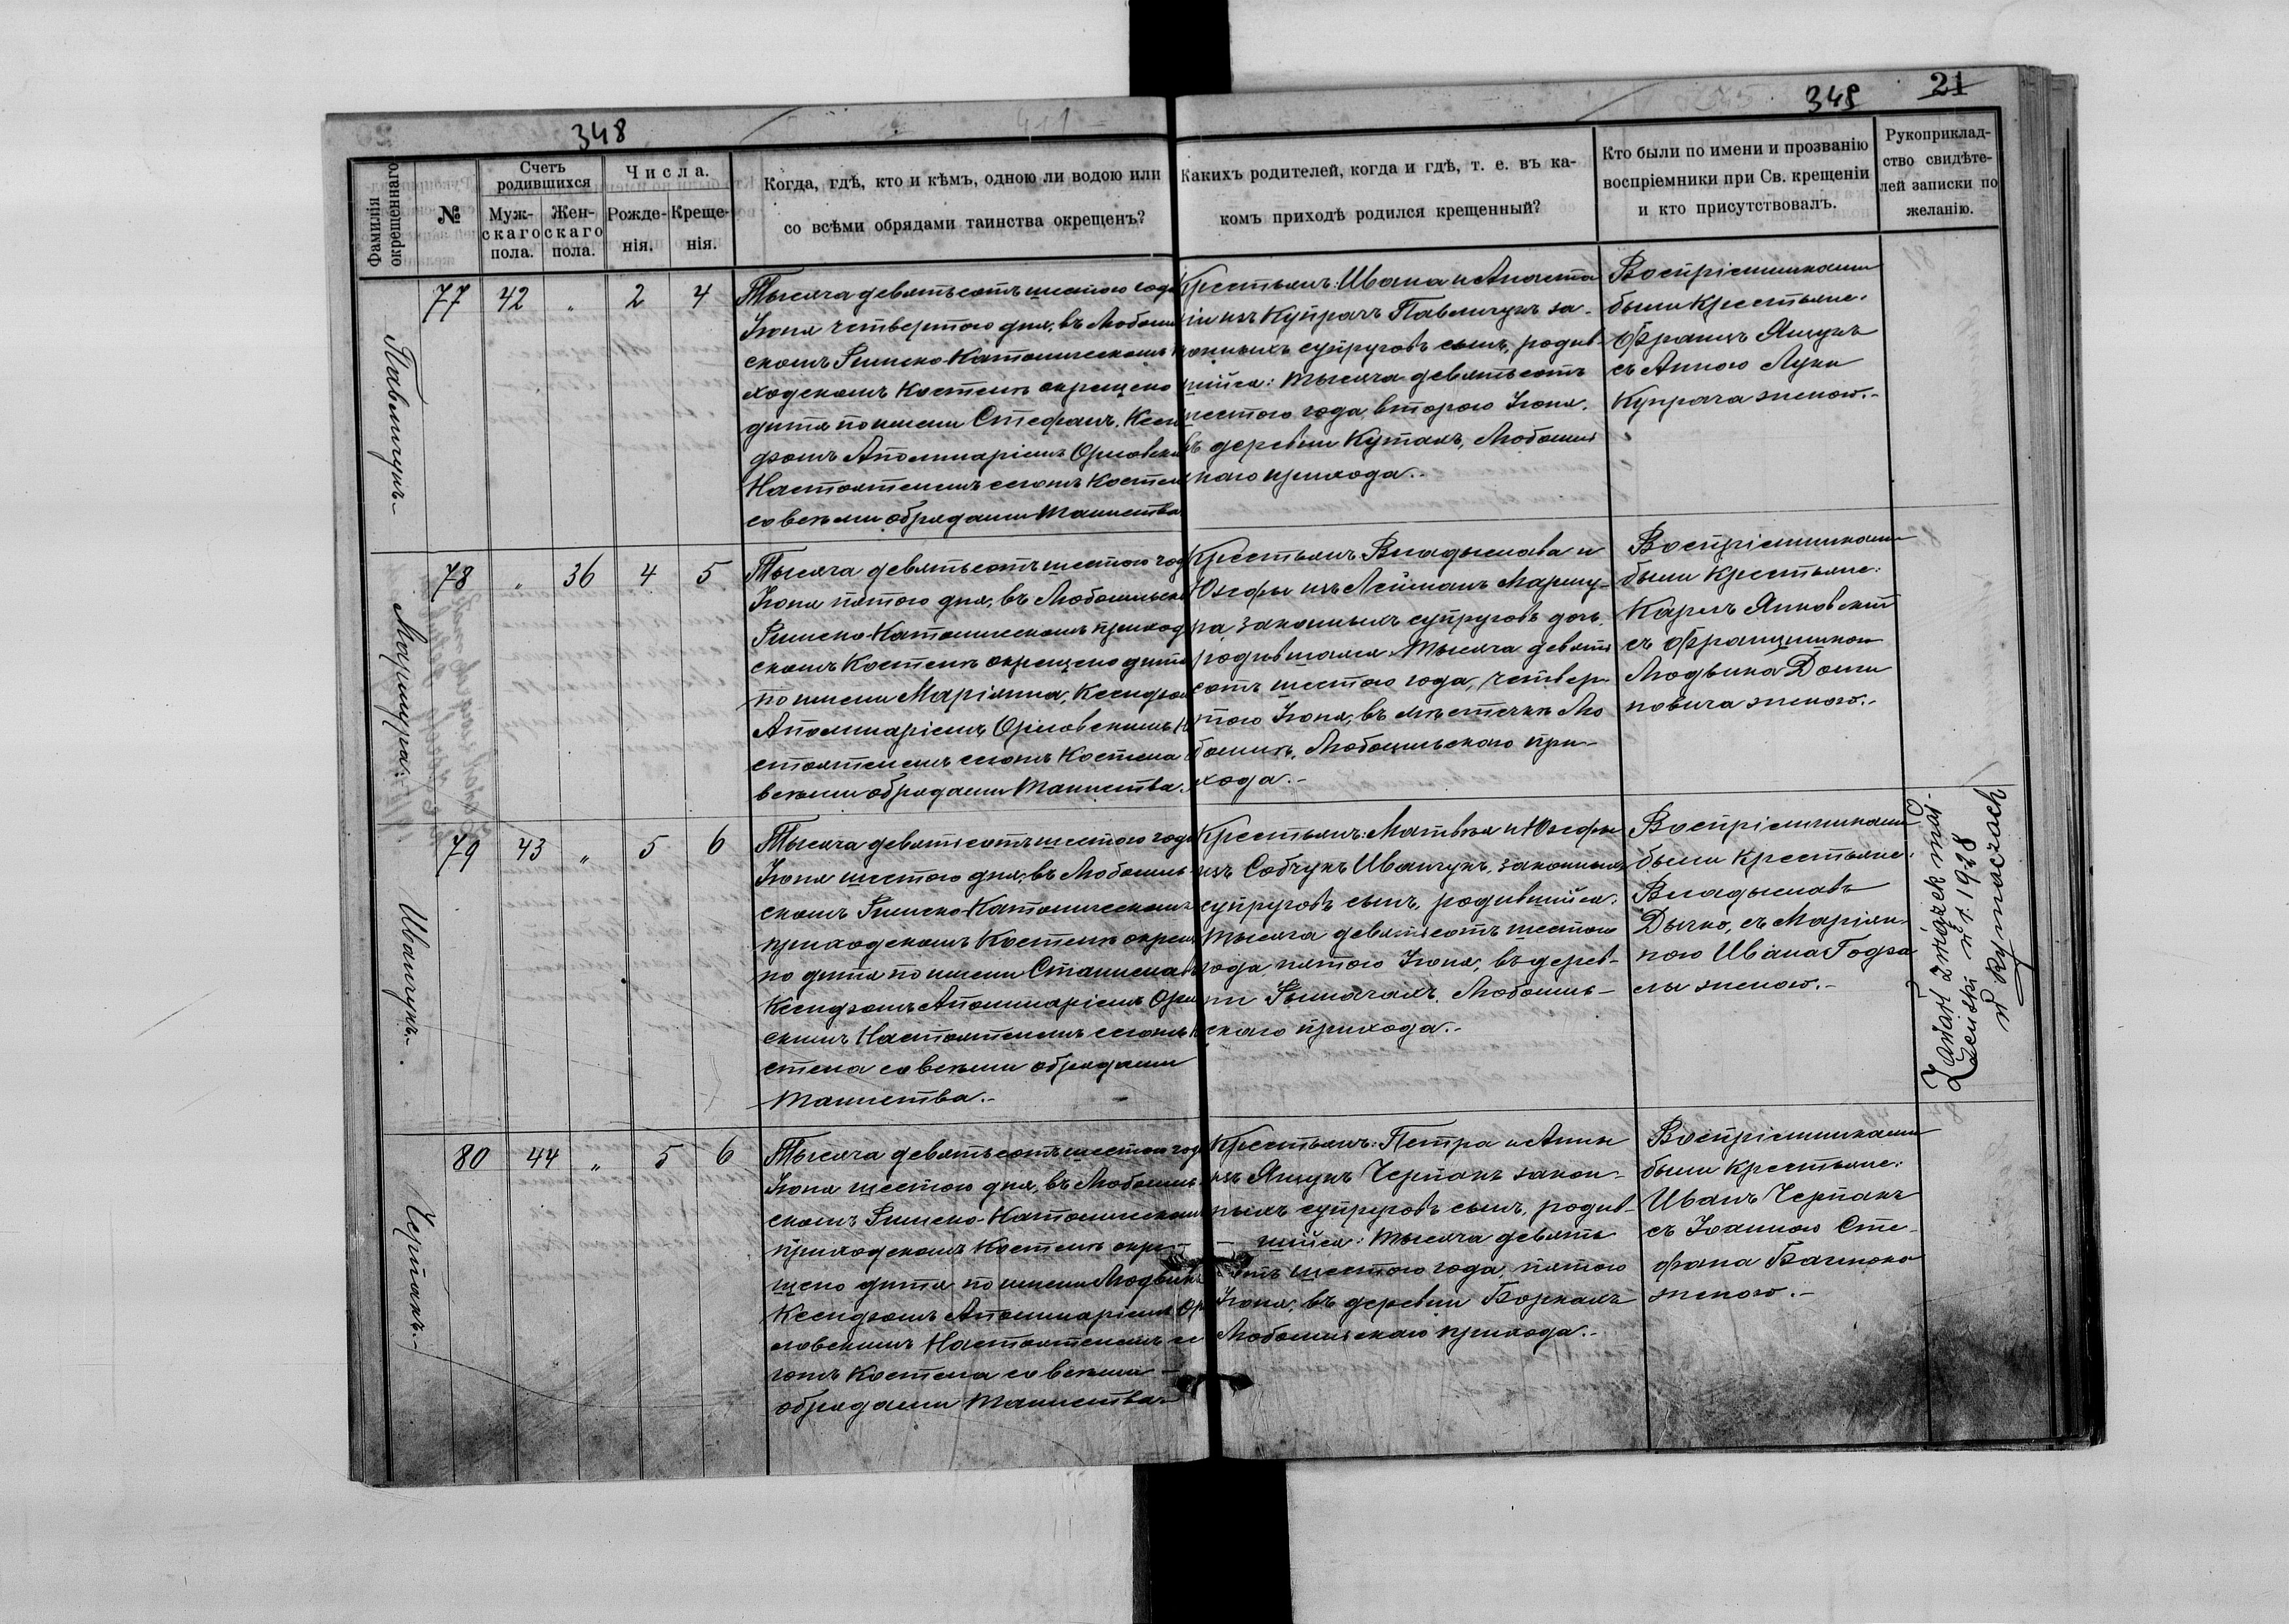 348
349
21
Фамилія окрещеннаго
№
Счетъ родившихся
Мужскаго пола.
Женскаго пола.
Числа.
Рожденія.
Крещенія.
Когда, гдѣ, кто и кѣмъ, одною ли водою или
со всѣми обрядами таинства окрещенъ?
Какихъ родителей, когда и гдѣ, т. е. въ ка-
комъ приходѣ родился крещенный?
Кто были по имени и прозванію
воспріемники при Св. крещеніи
и кто присутствовалъ.
Рукоприклад-
ство свидѣте-
лей записки по
желанію.
Павлищукъ
77 42 " 2 4
Тысяча девятьсотъ шестого года
Іюня четвертого дня, въ Любомль
скомъ Римско-Католическомъ
ходскомъ Костелѣ окрещено
дитя по имени Стефанъ, Ксен
дзомъ Аполинаріемъ Орловски
Настоятелемъ сегожъ Костел
со всѣми обрядами Таинства
Крестьянъ: Ивана и Анаста
іи изъ Купрачъ Павлищукъ за-
конныхъ супруговъ сынъ, родив-
шійся: тысяча девятьсотъ
шестого года второго Іюня,
въ деревни Кутахъ, Любомль
скаго прихода.-
Воспріемниками
были крестьяне:
Францъ Ящукъ
съ Анною Луки
Купрача женою.-
78 " 36 4 5
Тысяча девятьсотъ шестого год
Іюня пятого дня, въ Любомльско
Римско-Католическомъ приход
скомъ Костелѣ окрещено дитя
по имени Маріянна, Ксендзом
Аполинаріемъ Орловскимъ Н
стоятелемъ сегожъ Костела
всѣми обрядами Таинства.
Крестьянъ Владыслава и
Юзефы изъ
ра законныхъ супруговъ дочь,
родившаяся: тысяча девять
сотъ шестого года, четвер-
того Іюня, въ мѣстечкѣ Лю
бомлѣ, Любомльскаго при-
хода.-
Воспріемниками
были крестьяне:
Карлъ Янковскій
съ Францишкою
Людвика Доми
новича женою.-
Иванчукъ.
79 43 " 5 6
Тысяча девятьсотъ шестого года
Іюня шестого дня, въ Любомль
скомъ Римско-Католическомъ
приходскомъ Костелѣ окреще
но дитя по имени Станислав
Ксендзомъ Аполинаріемъ Орло
скимъ Настоятелемъ сегожъ К
стела со всѣми обрядами
Таинства.-
Крестьянъ: Матвѣя и Юзефы
изъ Собчукъ Иванчукъ, законныхъ
супруговъ сынъ, родившійся:
тысяча девятьсотъ шестого
года пятого Іюня, въ дерев-
ни Рымачахъ, Любомль-
скаго прихода.-
Воспріемниками
были крестьяне:
Владыславъ
Дычко, съ Маріян-
ною Ивана Годза
лы женою.-
Zawarł związek mał-
żeński w r. 1928
w Rymaczach
Черпакъ.-
80 44 " 5 6
Тысяча девятьсотъ шестого год
Іюня шестого дня, въ Любомль
скомъ Римско-Католическом
приходскомъ Костелѣ окре-
щено дитя по имени Людвикъ
Ксендзомъ Аполинаріемъ Ор
ловскимъ Настоятелемъ се
гожъ Костела со всѣми
обрядами Таинства
Крестьянъ: Петра и Анны
изъ Ящукъ Черпакъ закон-
ныхъ супруговъ сынъ, родив-
шійся: тысяча девять
сотъ шестого года, пятого
Іюня, въ деревни Боркахъ
Любомльскаго прихода.-
Воспріемниками
были крестьяне:
Иванъ Черпакъ
съ Іоанною Сте-
фана
женою.-